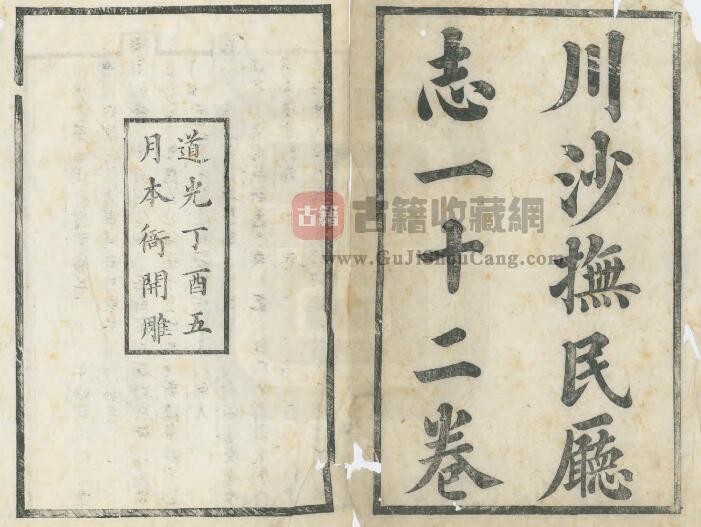 川沙撫民廳
志一十二卷
道光丁酉五
月本衙開雕
古籍
古籍收藏網
www.GuJiShouCang.com